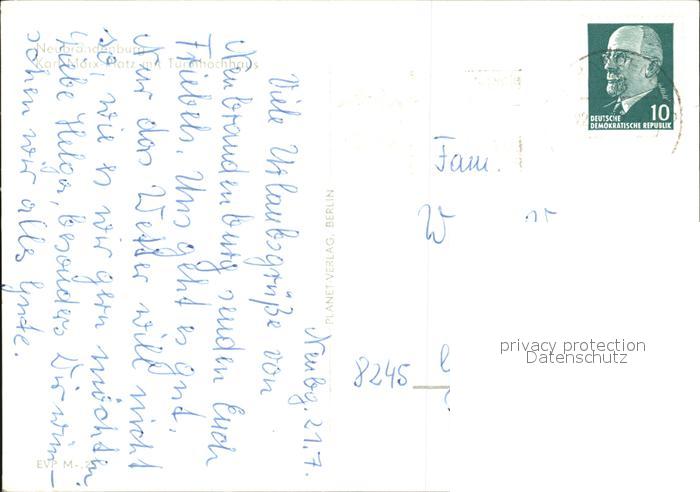 Neubrandenburg
Karl-Marx-Platz mit Turmhochhaus
Neubg. 21.7.
Viele Urlaubsgrüße von
Neubrandenburg senden Euch
Friebels. Uns geht es gut.
Nur das Wetter will nicht
so, wie es wir gern möchten.
Liebe Helga, besonders Dir wün-
schen wir alles Gute.
EVP M -,2
PLANET-VERLAG, BERLIN
10
DEUTSCHE
DEMOKRATISCHE REPUBLIK
Fam.
W
8245
privacy protection
Datenschutz